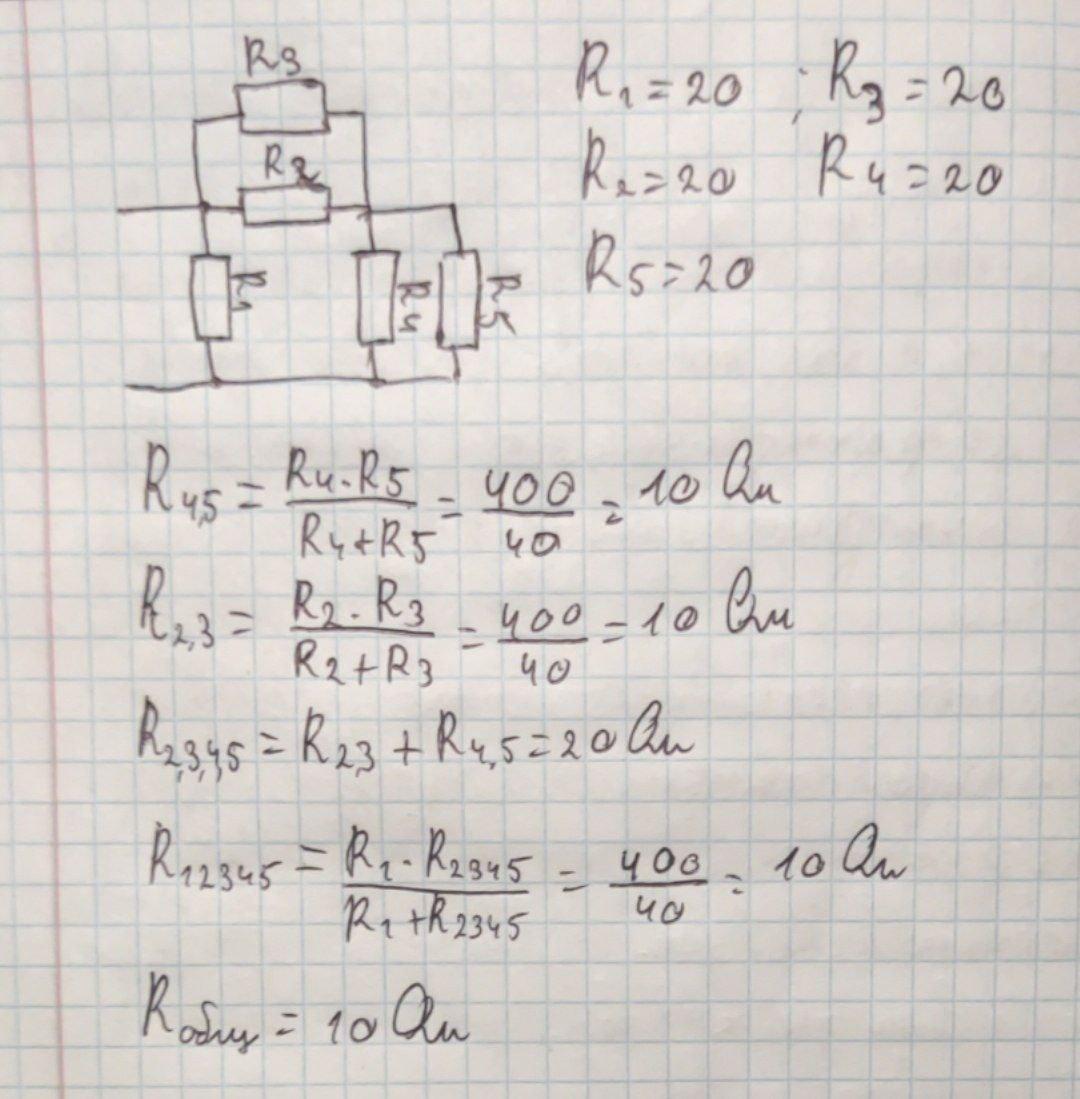 R3
R2
R1
R4
R5
R1 = 20 ; R3 = 20
R2 = 20 R4 = 20
R5 = 20
R4,5 = R4·R5 / R4+R5 = 400 / 40 = 10 Ом
R2,3 = R2·R3 / R2+R3 = 400 / 40 = 10 Ом
R2,3,4,5 = R2,3 + R4,5 = 20 Ом
R12345 = R1·R2345 / R1+R2345 = 400 / 40 = 10 Ом
Rобщ = 10 Ом